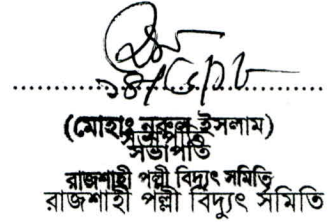 (মোহাঃ নুরুল ইসলাম)
সভাপতি
সভাপতি
রাজশাহী পল্লী বিদ্যুৎ সমিতি
রাজশাহী পল্লী বিদ্যুৎ সমিতি